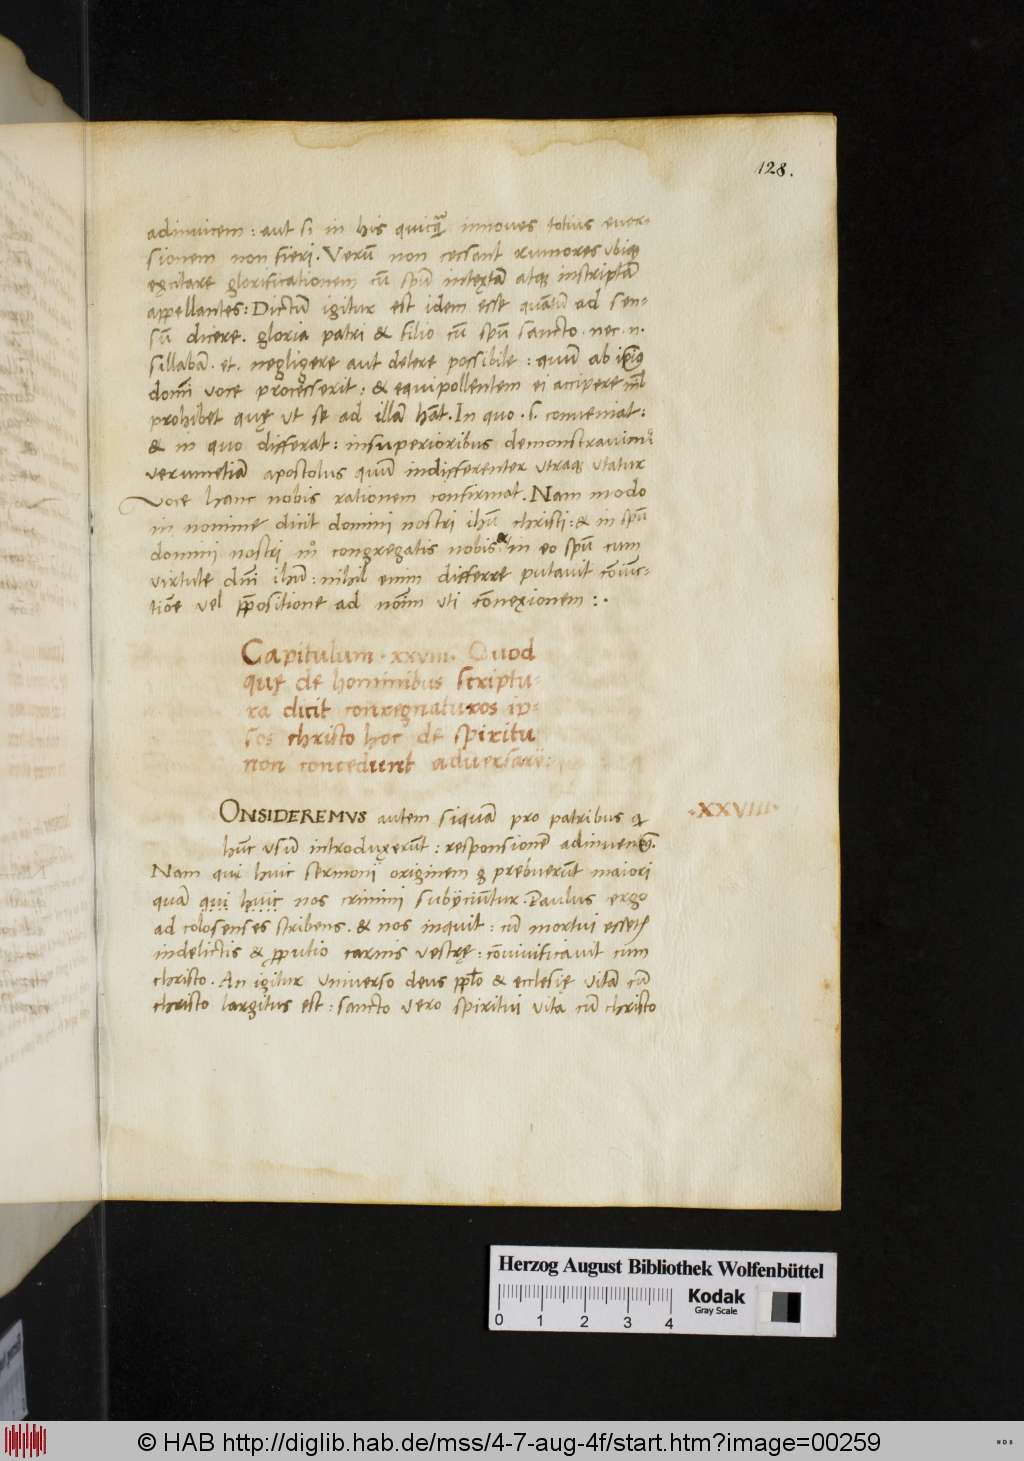 128.
adinuicem : aut si in his quicq̃ innoues totius euer-
sionem non fieri. Verũ non cessant rumores ubiq;
excitare glorificationem cũ spũ intextã atq; inscriptã
appellantes: Dictũ igitur est idem esse quãtũ ad sen-
sũ dicere. gloria patri & filio cũ spũ sancto. nec. n.
sillabã. et. negligere aut delere possibile : quũ ab ip̃iꝰ
domĩ voce processerit : & equipollentem ei accipere
prohibet quę ut se ad illã hãt. In quo. s. conueniat:
& in quo differat: insuperioribus demonstrauimꝰ
verumetiã apostolus quũ indifferenter utraq; utatur
voce hanc nobis rationem confirmat. Nam modo
in nomine dicit domini nostri ihũ christi: & in spũ
domini nostri congregatis nobis & in eo spũ cum
virtute dñi ihũ : nihil enim differre putauit cõiũc-
tiõe vel p̃positione ad noĩm uti cõnexionem :.
Capitulum . xxviii. Quod
quę de hominibus scriptu-
ra dicit conregnaturos ip-
sos christo hoc de spiritu
non concedunt aduersarii:
ONSIDEREMVS autem siquã pro patribus q
·XXVIII·
hũc usũ introduxerũt : responsionẽ adinuen
Nam qui huic sermoni originem prebuerũt maiori
quam qui huic nos crimini subijciũtur. Paulus ergo
ad colosenses scribens. & nos inquit: cũ mortui
indelictis & p̃putio carnis vestrę : cõuiuificauit cum
christo. An igitur uniuerso deus pp̃lo & ecclesię vitã cũ
christo largitus est : sancto vero spiritui vita cũ christo
Herzog August Bibliothek Wolfenbüttel
0 1 2 3 4
Kodak
Gray Scale
© HAB http://diglib.hab.de/mss/4-7-aug-4f/start.htm?image=00259